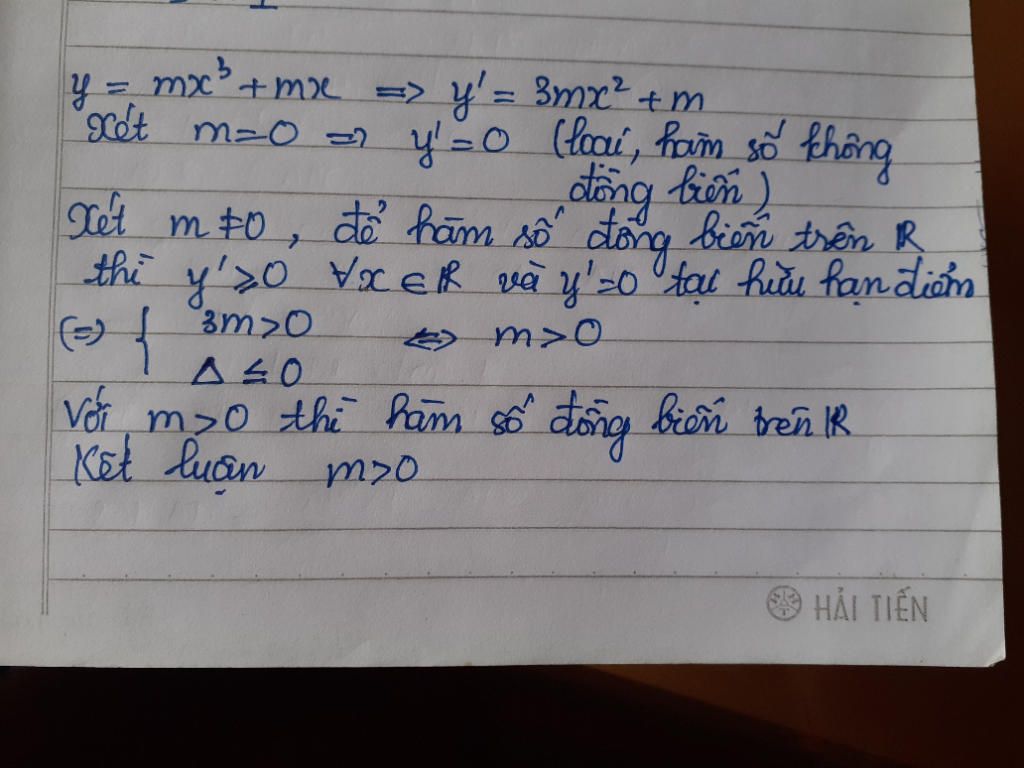 y = mx³ + mx => y' = 3mx² + m
Xét m = 0 => y' = 0 (loại, hàm số không
đồng biến)
Xét m ≠ 0, để hàm số đồng biến trên ℝ
thì y' ≥ 0 ∀x ∈ ℝ và y' = 0 tại hữu hạn điểm
(=) { 3m > 0 <=> m > 0
Δ ≤ 0
Với m > 0 thì hàm số đồng biến trên ℝ
Kết luận m > 0
HẢI TIẾN